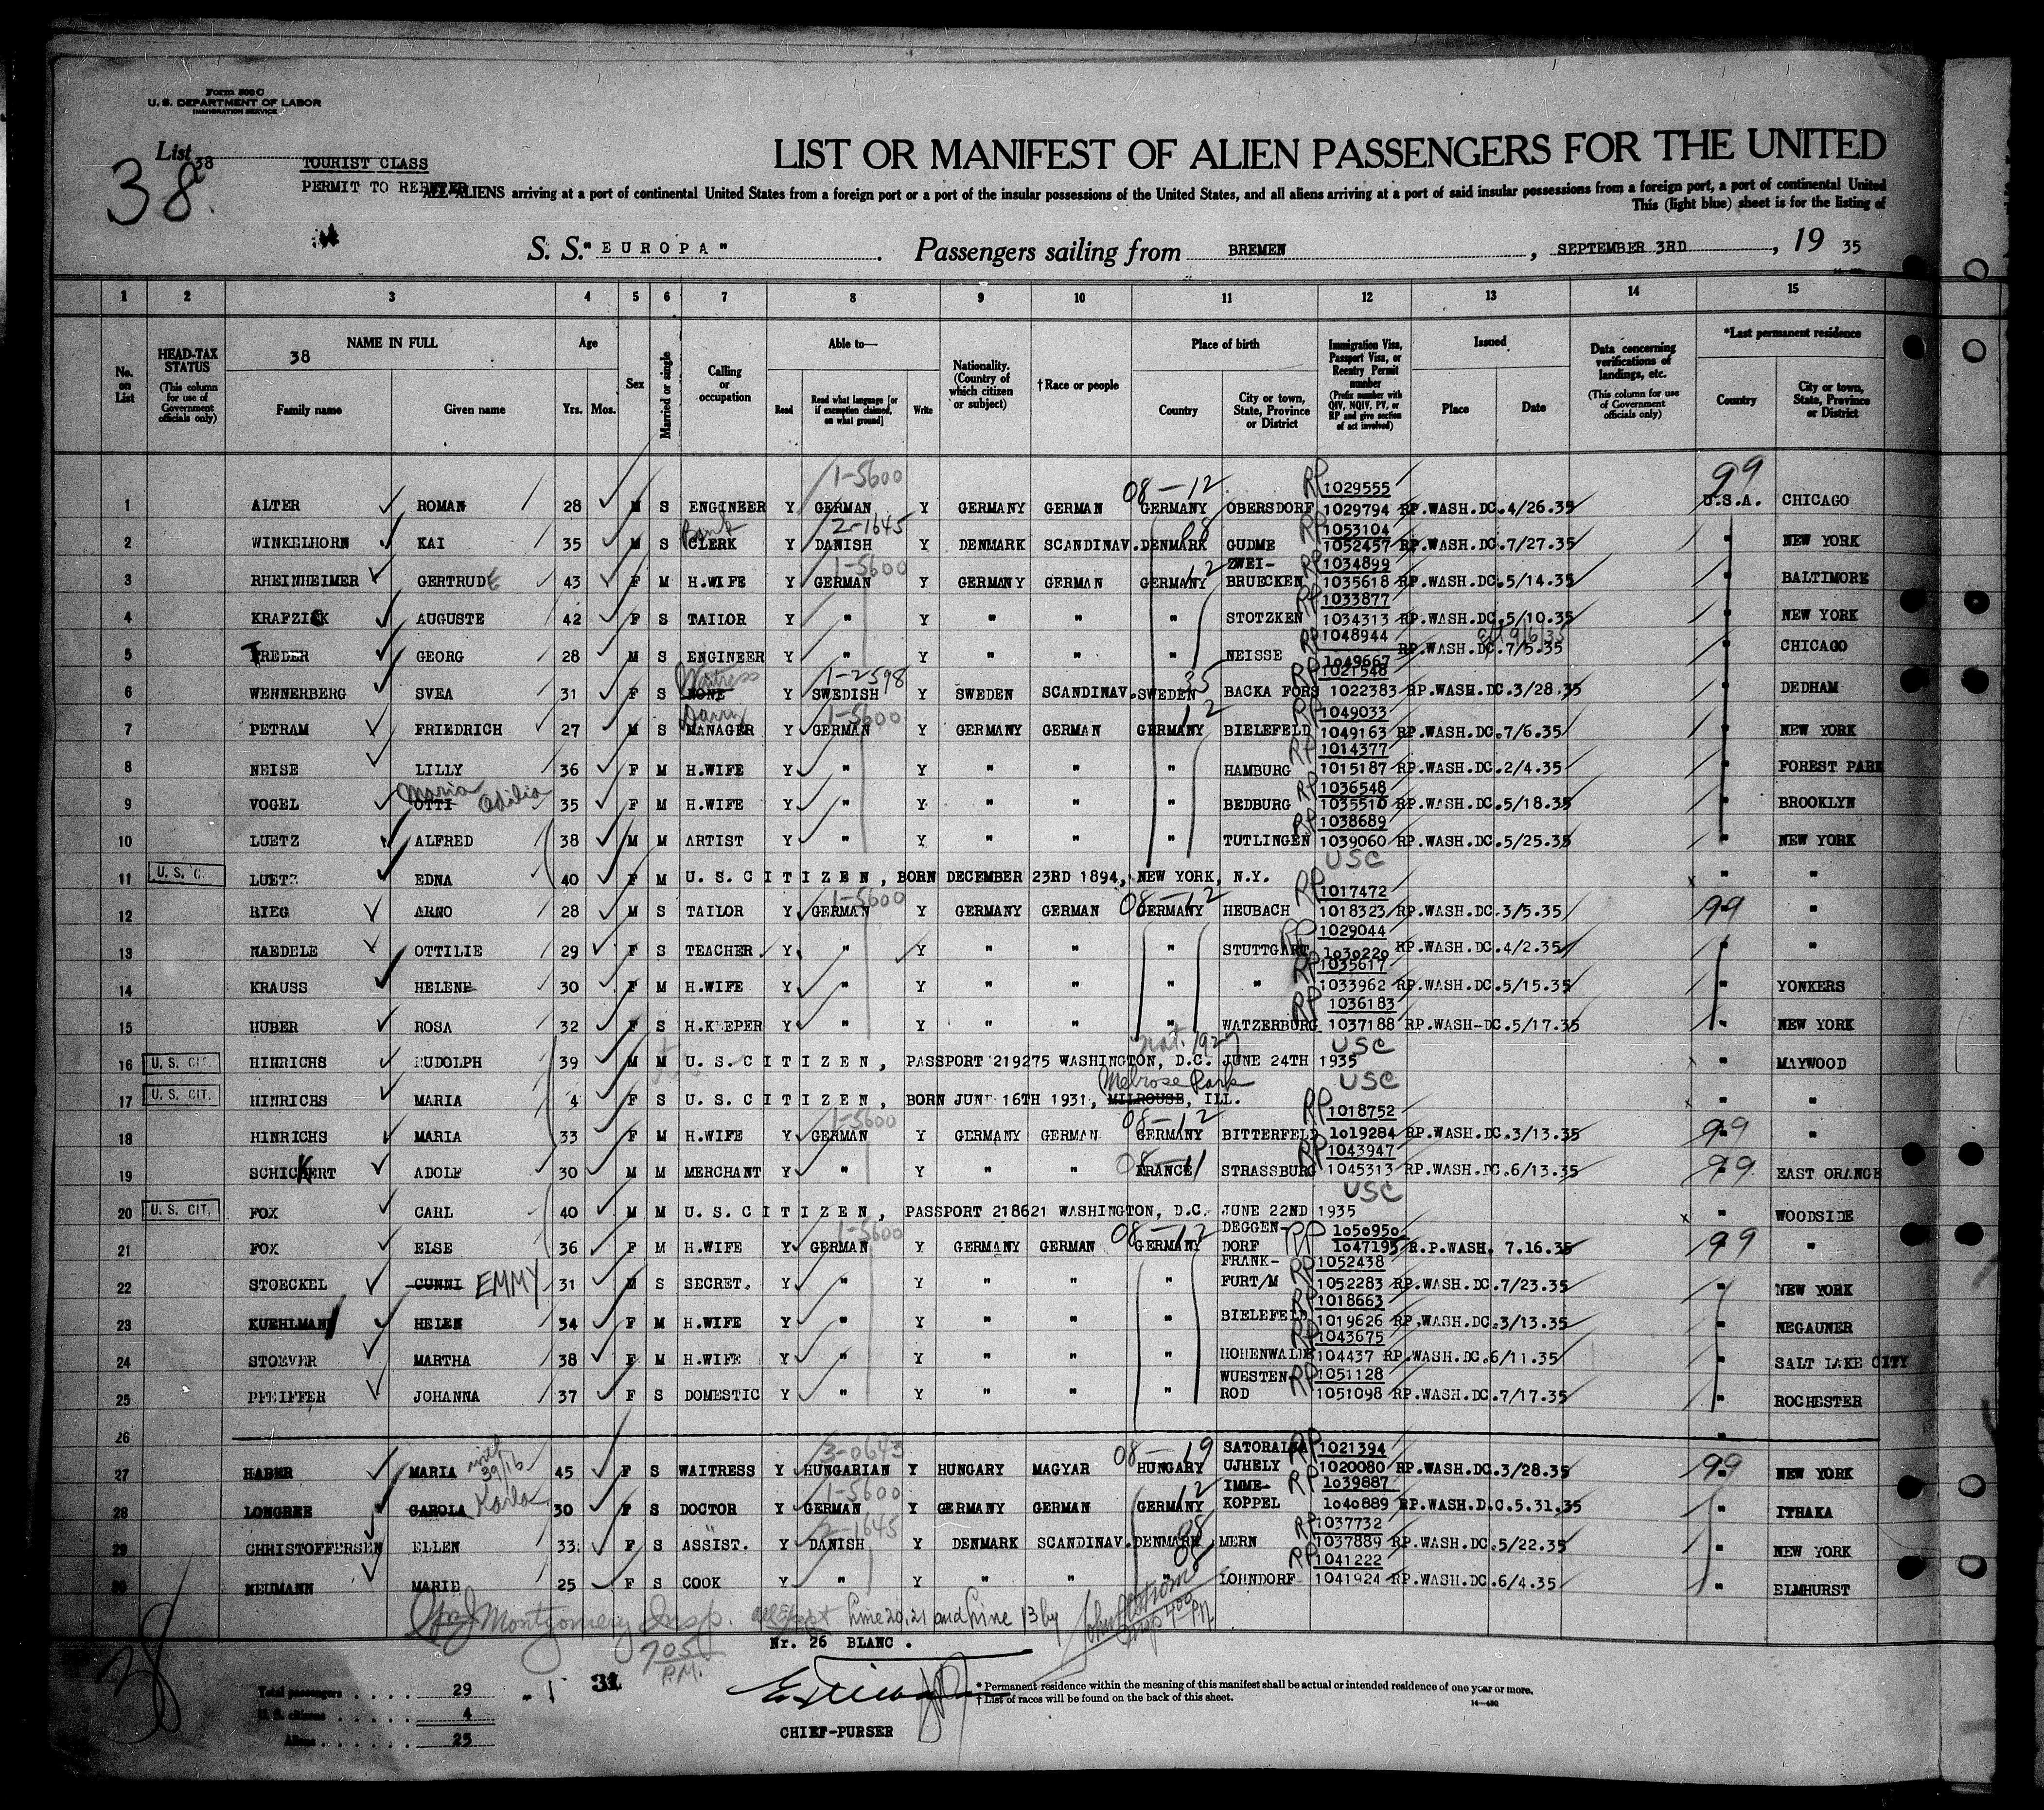 Form 500 C
U. S. DEPARTMENT OF LABOR
IMMIGRATION SERVICE
List 38
38
TOURIST CLASS
PERMIT TO REENTER
LIST OR MANIFEST OF ALIEN PASSENGERS FOR THE UNITED
ALL ALIENS arriving at a port of continental United States from a foreign port or a port of the insular possessions of the United States, and all aliens arriving at a port of said insular possessions from a foreign port, a port of continental United
This (light blue) sheet is for the listing of
S. S. "EUROPA" . Passengers sailing from BREMEN , SEPTEMBER 3RD , 19 35
1 2 3 4 5 6 7 8 9 10 11 12 13 14 15
No. on List
HEAD-TAX STATUS (This column for use of Government officials only)
NAME IN FULL 38
Family name Given name
Age Yrs. Mos.
Sex
Married or single
Calling or occupation
Able to— Read Read what language [or if exemption claimed, on what ground] Write
Nationality. (Country of which citizen or subject)
† Race or people
Place of birth Country City or town, State, Province or District
Immigration Visa, Passport Visa, or Reentry Permit number (Prefix number with QIV, NQIV, PV, or RP and give section of act involved)
Issued Place Date
Data concerning verifications of landings, etc. (This column for use of Government officials only)
*Last permanent residence Country City or town, State, Province or District
1-5600 08-12 RP 1029555 99
1 ALTER ROMAN 28 M S ENGINEER Y GERMAN Y GERMANY GERMAN GERMANY OBERSDORF 1029794 RP.WASH.DC.4/26.35 U.S.A. CHICAGO
Bank 2-1645 08 RP 1053104
2 WINKELHORN KAI 35 M S CLERK Y DANISH Y DENMARK SCANDINAV. DENMARK GUDME 1052457 RP.WASH.DC.7/27.35 " NEW YORK
1-5600 12 ZWEI- RP 1034899
3 RHEINHEIMER GERTRUDE 43 F M H.WIFE Y GERMAN Y GERMANY GERMAN GERMANY BRUECKEN 1035618 RP.WASH.DC.5/14.35 " BALTIMORE
RP 1033877
4 KRAFZICK AUGUSTE 42 F S TAILOR Y " Y " " " STOTZKEN 1034313 RP.WASH.DC.5/10.35 " NEW YORK
RP 1048944 9/6/35
5 TREDER GEORG 28 M S ENGINEER Y " Y " " " NEISSE 1049667 RP.WASH.DC.7/5.35 " CHICAGO
Waitress 1-2598 35 RP 1021548
6 WENNERBERG SVEA 31 F S NONE Y SWEDISH Y SWEDEN SCANDINAV. SWEDEN BACKA FORS 1022383 RP.WASH.DC.3/28.35 " DEDHAM
Dairy 1-5600 12 RP 1049033
7 PETRAM FRIEDRICH 27 M S MANAGER Y GERMAN Y GERMANY GERMAN GERMANY BIELEFELD 1049163 RP.WASH.DC.7/6.35 " NEW YORK
RP 1014377
8 NEISE LILLY 36 F M H.WIFE Y " Y " " " HAMBURG 1015187 RP.WASH.DC.2/4.35 " FOREST PARK
Maria Odilia RP 1036548
9 VOGEL OTTI 35 F M H.WIFE Y " Y " " " BEDBURG 1035510 RP.WASH.DC.5/18.35 " BROOKLYN
RP 1038689
10 LUETZ ALFRED 38 M M ARTIST Y " Y " " " TUTLINGEN 1039060 RP.WASH.DC.5/25.35 " NEW YORK
USC
11 U. S. C. LUETZ EDNA 40 F M U. S. CITIZEN, BORN DECEMBER 23RD 1894, NEW YORK, N.Y. " "
1-5600 08-12 RP 1017472
12 RIEG ARNO 28 M S TAILOR Y GERMAN Y GERMANY GERMAN GERMANY HEUBACH 1018323 RP.WASH.DC.3/5.35 99 "
RP 1029044
13 NAEDELE OTTILIE 29 F S TEACHER Y " Y " " " STUTTGART 1030220 RP.WASH.DC.4/2.35 " "
RP 1035617
14 KRAUSS HELENE 30 F M H.WIFE Y " Y " " " " 1033962 RP.WASH.DC.5/15.35 " YONKERS
RP 1036183
15 HUBER ROSA 32 F S H.KEEPER Y " Y " " " WATZERBURG 1037188 RP.WASH-DC.5/17.35 " NEW YORK
nat. 1927 USC
16 U. S. CIT. HINRICHS RUDOLPH 39 M M U. S. CITIZEN, PASSPORT 219275 WASHINGTON, D.C. JUNE 24TH 1935 " MAYWOOD
Melrose Park USC
17 U. S. CIT. HINRICHS MARIA 4 F S U. S. CITIZEN, BORN JUNE 16TH 1931, MILROUSE, ILL. " "
1-5600 08-12 RP 1018752
18 HINRICHS MARIA 33 F M H.WIFE Y GERMAN Y GERMANY GERMAN GERMANY BITTERFELD 1019284 RP.WASH.DC.3/13.35 99 "
08-11 RP 1043947
19 SCHICKERT ADOLF 30 M M MERCHANT Y " Y " " FRANCE STRASSBURG 1045313 RP.WASH.DC.6/13.35 99 EAST ORANGE
USC
20 U. S. CIT. FOX CARL 40 M M U. S. CITIZEN, PASSPORT 218621 WASHINGTON, D.C. JUNE 22ND 1935 " WOODSIDE
1-5600 08-12 DEGGEN- RP 1050950
21 FOX ELSE 36 F M H.WIFE Y GERMAN Y GERMANY GERMAN GERMANY DORF 1047195 R.P.WASH. 7.16.35 99 "
FRANK- RP 1052438
22 STOECKEL GUNNI EMMY 31 M S SECRET. Y " Y " " " FURT/M 1052283 RP.WASH.DC.7/23.35 " NEW YORK
RP 1018663
23 KUEHLMAN HELEN 34 F M H.WIFE Y " Y " " " BIELEFELD 1019626 RP.WASH.DC.3/13.35 " NEGAUNER
RP 1043675
24 STOEVER MARTHA 38 F M H.WIFE Y " Y " " " HOHENWALDE 104437 RP.WASH.DC.6/11.35 " SALT LAKE CITY
WUESTEN- RP 1051128
25 PFEIFFER JOHANNA 37 F S DOMESTIC Y " Y " " " ROD 1051098 RP.WASH.DC.7/17.35 " ROCHESTER
26 "
3-0643 08-19 SATORALJA RP 1021394
27 HABER MARIA 45 F S WAITRESS Y HUNGARIAN Y HUNGARY MAGYAR HUNGARY UJHELY 1020080 RP.WASH.DC.3/28.35 99 NEW YORK
Karla 1-5600 12 IMME- RP 1039887
28 LONGREE CAROLA 30 F S DOCTOR Y GERMAN Y GERMANY GERMAN GERMANY KOPPEL 1040889 RP.WASH.D.C.5.31.35 " ITHAKA
" 2-1645 08 RP 1037732
29 CHRISTOFFERSEN ELLEN 33 F S ASSIST. Y DANISH Y DENMARK SCANDINAV. DENMARK MERN 1037889 RP.WASH.DC.5/22.35 " NEW YORK
08 RP 1041222
30 NEUMANN MARIE 25 F S COOK Y " Y " " " LOHNDORF 1041924 RP.WASH.DC.6/4.35 " ELMHURST
Montgomery Insp. all except Line 20, 21 and Line 13 by
7 05 P.M.
Nr. 26 BLANC .
38
31
Total passengers . . . . 29
U. S. citizens . . . . . 4
Aliens . . . . . . 25
CHIEF-PURSER
* Permanent residence within the meaning of this manifest shall be actual or intended residence of one year or more.
† List of races will be found on the back of this sheet.
14—480